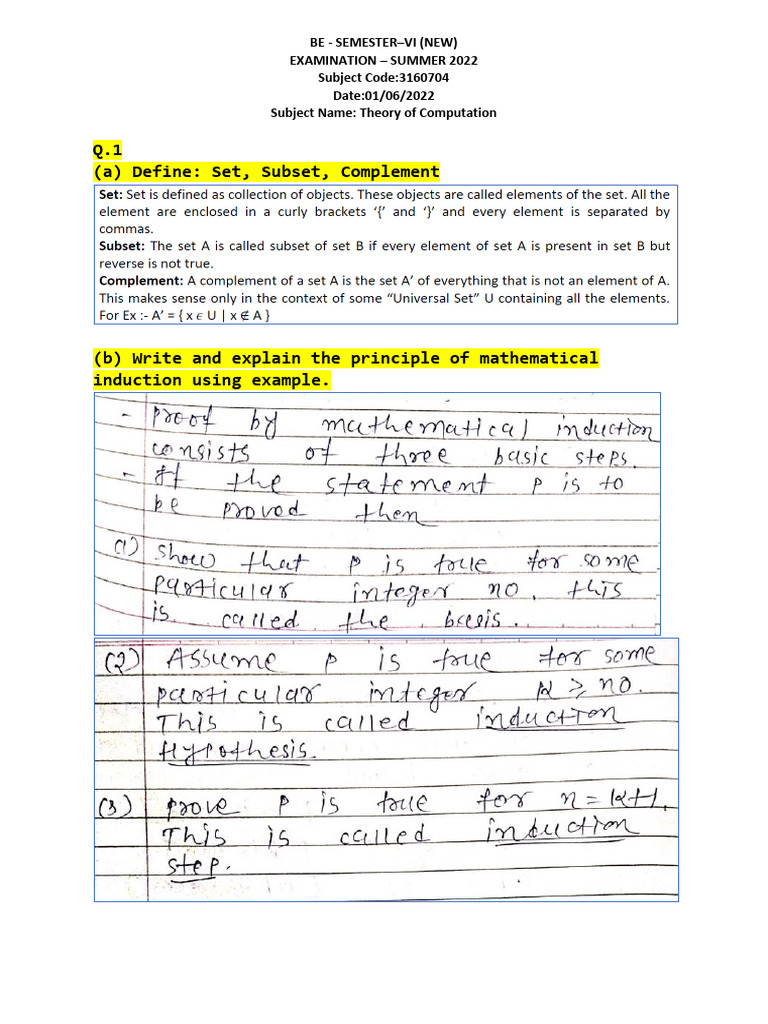 BE - SEMESTER–VI (NEW)
EXAMINATION – SUMMER 2022
Subject Code:3160704
Date:01/06/2022
Subject Name: Theory of Computation
Q.1
(a) Define: Set, Subset, Complement
Set: Set is defined as collection of objects. These objects are called elements of the set. All the
element are enclosed in a curly brackets ‘{’ and ‘}’ and every element is separated by
commas.
Subset: The set A is called subset of set B if every element of set A is present in set B but
reverse is not true.
Complement: A complement of a set A is the set A’ of everything that is not an element of A.
This makes sense only in the context of some “Universal Set” U containing all the elements.
For Ex :- A’ = { x ϵ U | x ∉ A }
(b) Write and explain the principle of mathematical
induction using example.
- Proof by mathematical induction
consists of three basic steps.
- If the statement p is to
be proved then
(1) show that p is true for some
particular integer no, this
is called the basis.
(2) Assume p is true for some
particular integer K ≥ no.
This is called induction
Hypothesis.
(3) prove p is true for n = K+1.
This is called induction
step.